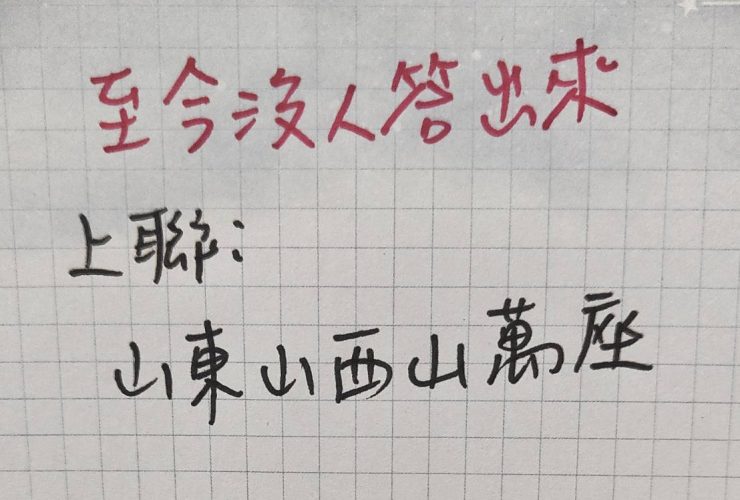 至今沒人答出來
上聯:
山東山西山萬座